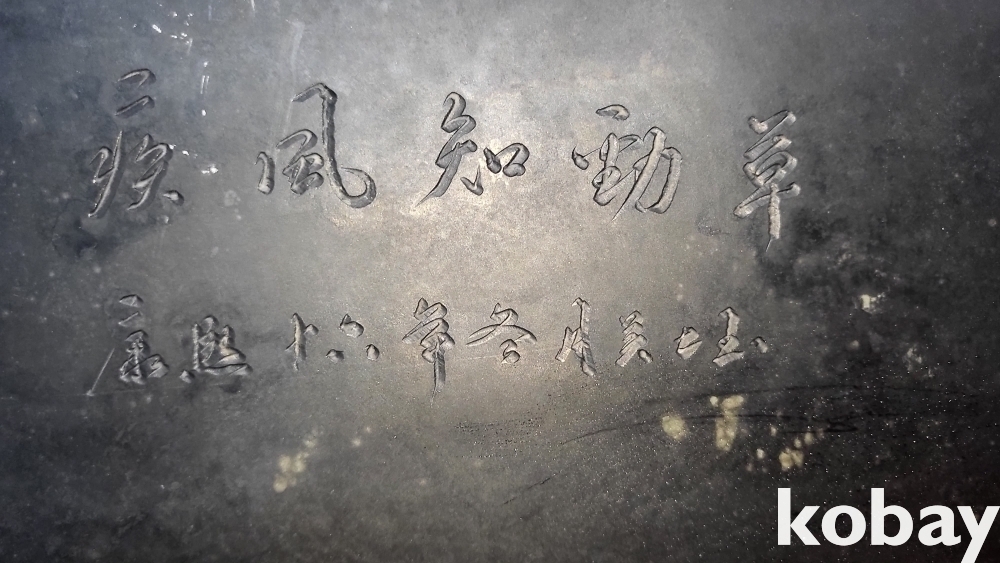 疾風知勁草
康熙十六年冬月吴七
kobay